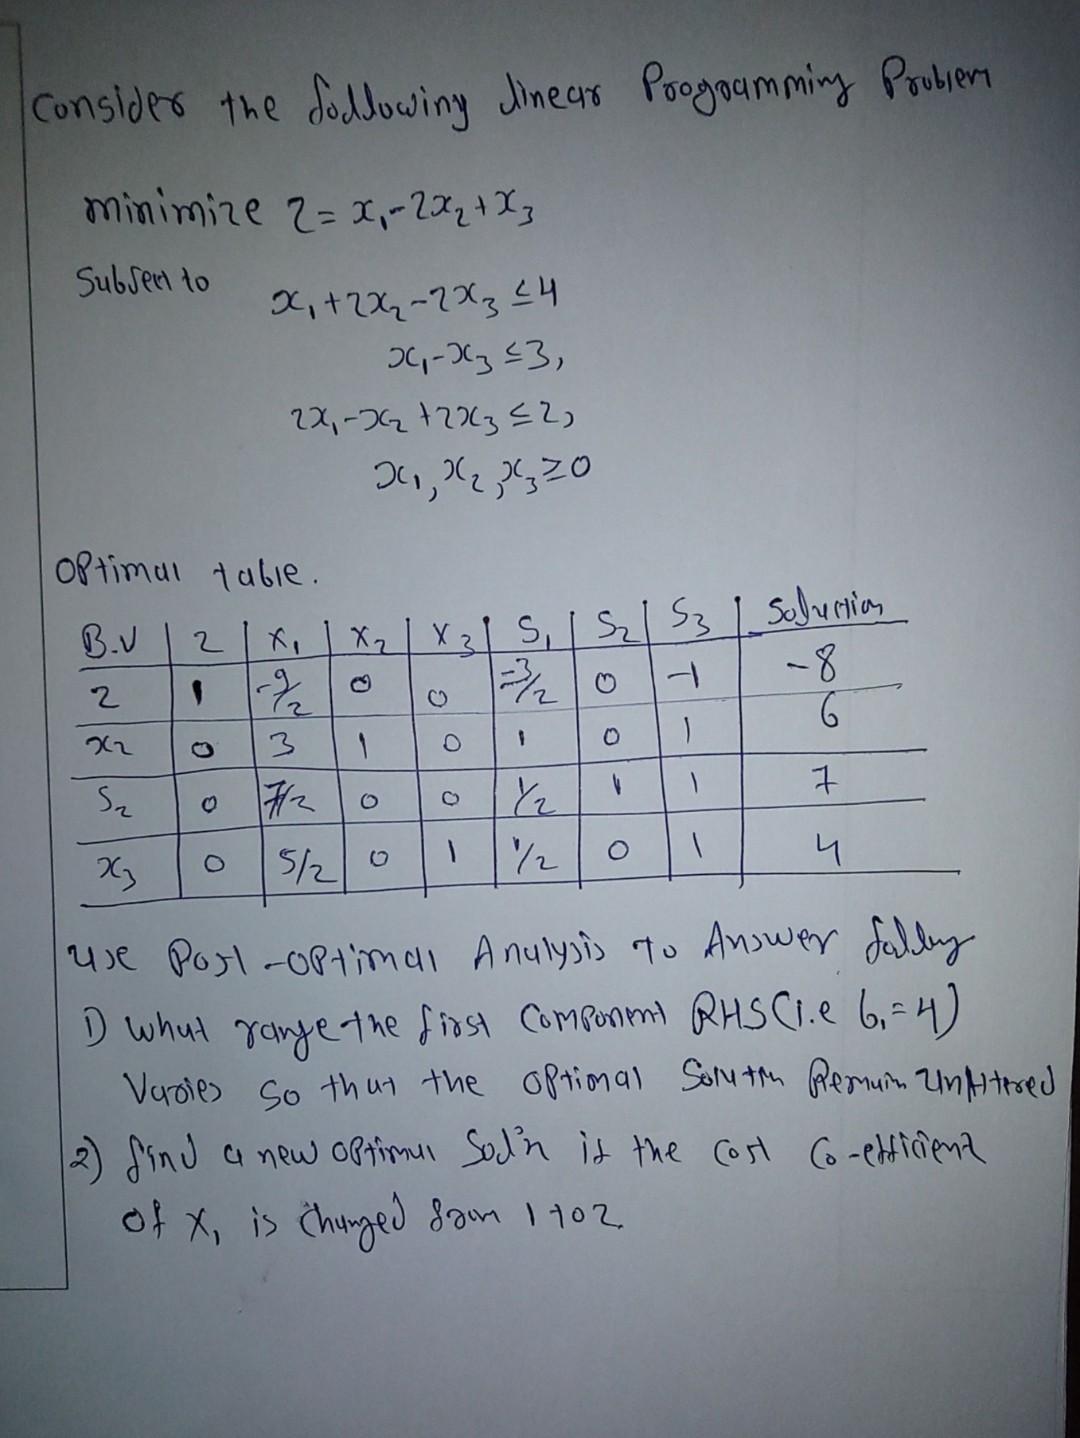 Consider the following linear Programming Problem
minimize Z = x₁-2x₂+x₃
Subject to
x₁+2x₂-2x₃ ≤4
x₁-x₃ ≤3,
2x₁-x₂+2x₃ ≤2,
x₁,x₂,x₃≥0
Optimal table.
B.V | Z | X₁ | X₂ | X₃ | S₁ | S₂ | S₃ | Solution
Z | 1 | -9/2 | 0 | 0 | -3/2 | 0 | -1 | -8
x₂ | 0 | 3 | 1 | 0 | 1 | 0 | 1 | 6
S₂ | 0 | 7/2 | 0 | 0 | 1/2 | 1 | 1 | 7
x₃ | 0 | 5/2 | 0 | 1 | 1/2 | 0 | 1 | 4
use Post-optimal Analysis to Answer
1) what range the first Component RHS (i.e b₁=4)
Varies so that the optimal Solution Remain UnAltered
2) find a new optimal Sol'n if the cost Co-efficient
of X₁ is changed from 1 to 2